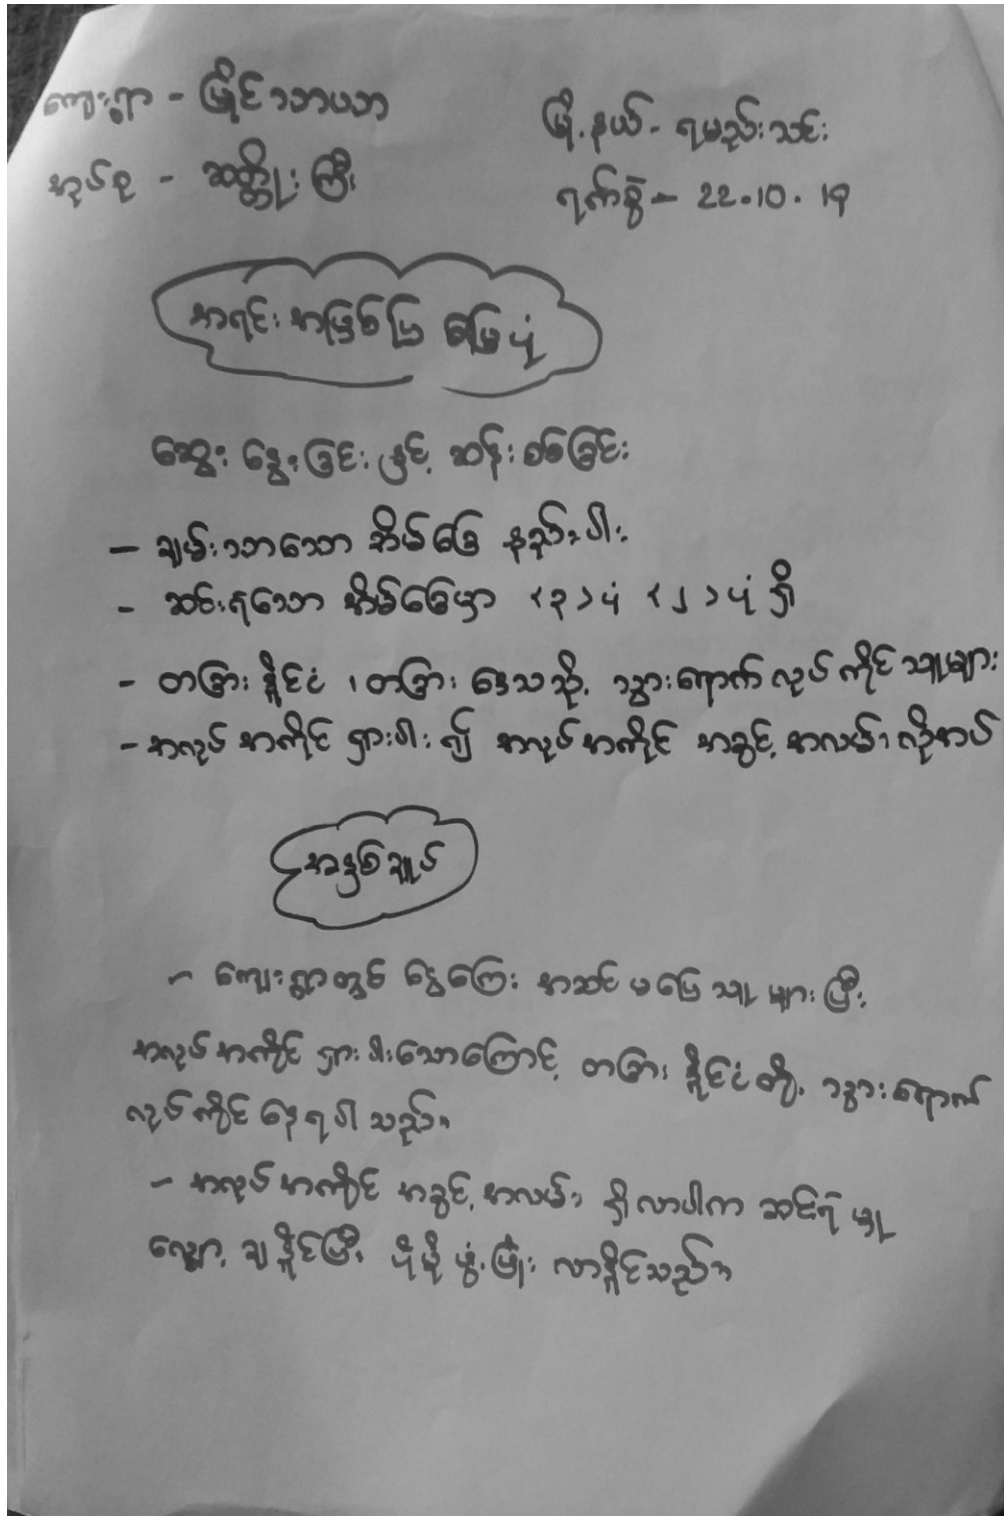 ကျေးရွာ - မြိုင်သာယာ
မြို့နယ် - ရမည်းသင်း
အုပ်စု - ဆတ္တိုးကြီး
ရက်စွဲ - 22.10.19
အရင်းအမြစ်ပြ မြေပုံ
ဆွေးနွေးခြင်းနှင့် ဆန်းစစ်ခြင်း
- ချမ်းသာသော အိမ်ခြေ နည်းပါး
- ဆင်းရဲသော အိမ်ခြေမှာ (၃) ပုံ (၂) ပုံ ရှိ
- တခြားနိုင်ငံ ၊ တခြားဒေသသို့ သွားရောက်လုပ်ကိုင်သူများ
- အလုပ်အကိုင် ရှားပါး၍ အလုပ်အကိုင် အခွင့်အလမ်း လိုအပ်
အနှစ်ချုပ်
- ကျေးရွာတွင် ငွေကြေး အဆင်မပြေသူများပြီး
အလုပ်အကိုင် ရှားပါးသောကြောင့် တခြားနိုင်ငံတို့ သွားရောက်
လုပ်ကိုင်နေရပါသည်။
- အလုပ်အကိုင် အခွင့်အလမ်း ရှိလာပါက ဆင်းရဲမှု
လျှော့ချနိုင်ပြီး ပိုမိုဖွံ့ဖြိုး လာနိုင်သည်။